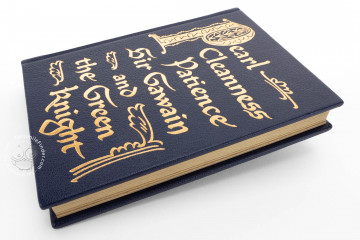 Pearl
Cleanness
Patience
and
Sir Gawain
the Green
Knight